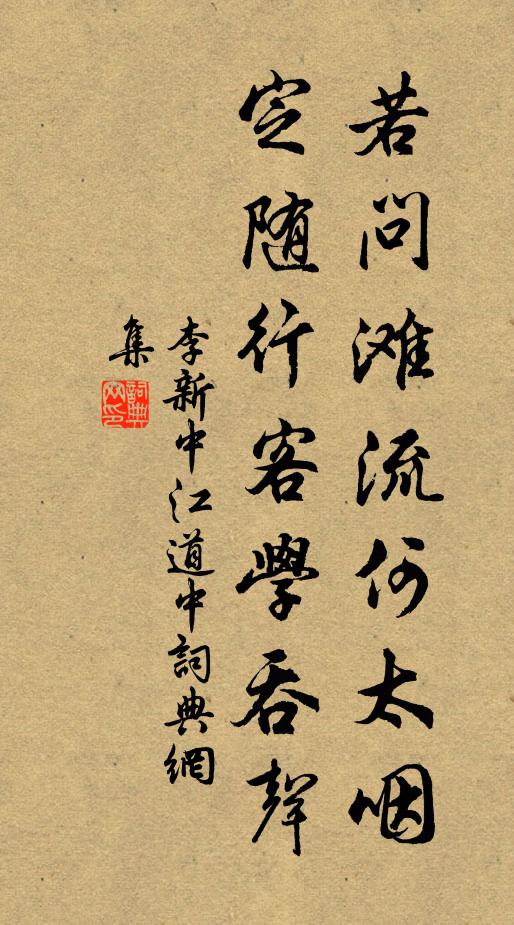 若问滩流何太咽
定随行客學吞聲
李新中江道中詞典網
集
詞典
网印